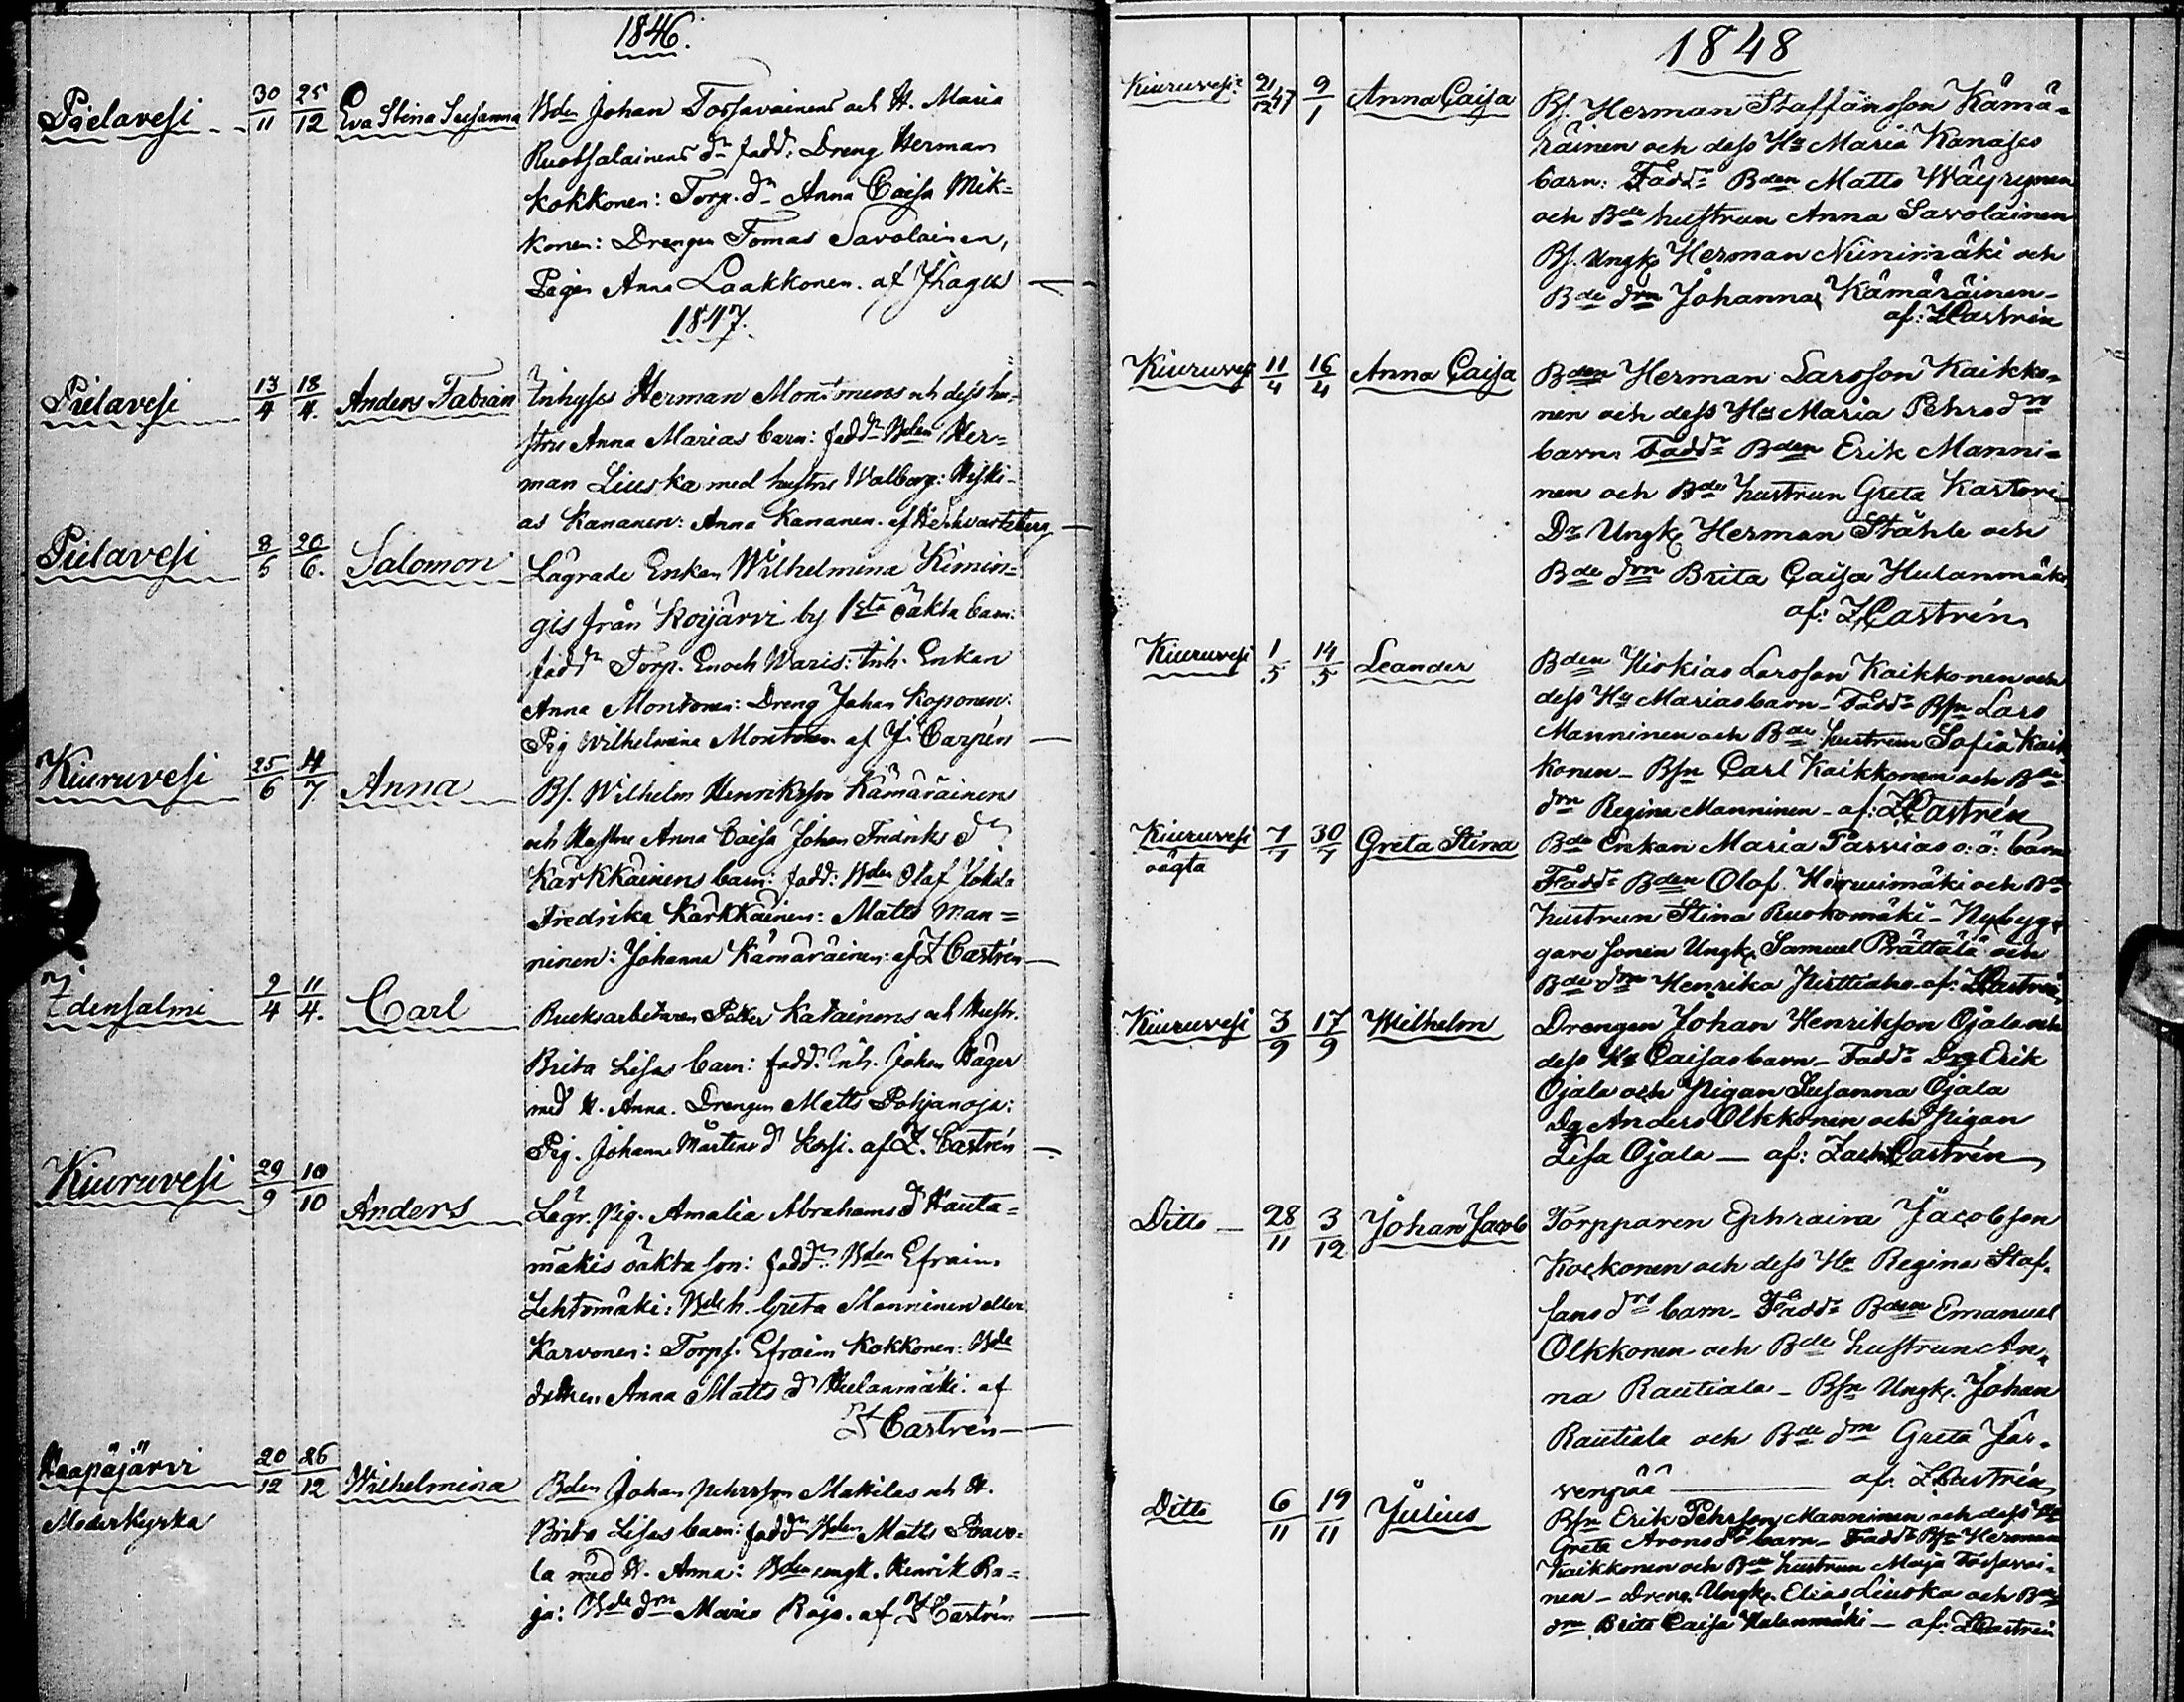 1846.
Pielavesi 30/11 25/12 Eva Stina Susanna Bden Johan Tossavainens och H. Maria
Ruotsalainens dr fadd: Dreng Herman
Kokkonen: Torp. dr Anna Caisa Mik=
konen: Drengen Tomas Savolainen,
Pigan Anna Laakkonen. af
1847.
Pielavesi 13/4 18/4. Anders Fabian Inhyses Herman Montonens och dess hu=
stru Anna Marias barn: fadd Bden Her=
man Liuska med hustru Walborg: Hiski=
as Kananen: Anna Kananen. af
Pielavesi 8/5 20/6. Salomon Lägrade Enkan Wilhelmina Kimin=
gis från Koijärvi by 1sta oäkta barn:
fadd Torp. Enoch Waris: Inh. Enkan
Anna Montonen: Dreng Johan Koponen:
Pig Wilhelmina Montonen af J. Carpén
Kiuruvesi 25/6 4/7 Anna Bs. Wilhelm Henriksson Kämäräinens
och Hustru Anna Caisa Johan Fredriks dr
Kärkkäinens barn: fadd: Bden Olaf
Fredrika Kärkkäinen: Matts Man=
ninen: Johanna Kämäräinen: af Z Castrén
Idensalmi 2/4 11/4. Carl Bruksarbetaren Petter Katainens och Hustr.
Brita Lisas barn: fadd. Inh. Johan Häger
med H. Anna. Drengen Matts Pohjanoja:
Pig. Johanna Mårtens d af Z. Castrén
Kiuruvesi 29/9 10/10 Anders Lägr. Pig. Amalia Abrahams d Hauta=
mäkis oäkta son: fadd: Bden Efraim
Lehtomäki: Bde h. Greta Manninen eller
Karvonen: Torps. Efraim Kokkonen: Bde
dottren Anna Matts d Hulanmäki: af
Z Castrén
Haapajärvi 20/12 26/12 Wilhelmina Bden Johan Pehrsson Mattilas och H.
Moderkyrka Brita Lisas barn: fadd Bden Matts Paavo=
la med H. Anna: Bden ungk. Henrik Ra=
ja: Bde drn Maria Raja. af Z Castrén
1848
Kiuruvesi 21/12 47 9/1 Anna Caisa Bs. Herman Staffansson Kämä=
räinen och dess Hu Maria Kanases
barn: Fadd Bden Matts Wäyrynen
och Bde hustrun Anna Savolainen
Bs. Ungk Herman Niinimäki och
Bde drn Johanna Kämäräinen
af: Z Castrén
Kiuruvesi 11/4 16/4 Anna Caisa Bden Herman Larsson Kaikko=
nen och dess Hu Maria Pehrs drs
barn. Fadd Bden Erik Manni=
nen och Bde hustrun Greta
Dr Ungk Herman Ståhle och
Bde drn Brita Caisa Hulanmäki
af: Z Castrén
Kiuruvesi 1/5 14/5 Leander Bden Hiskias Larsson Kaikkonen och
dess Hu Marias barn Fadd Bsn Lars
Manninen och Bde hustrun Sofia Kaik
konen Bsn Carl Kaikkonen och Bde
drn Regina Manninen af: Z Castrén
Kiuruvesi 7/7 30/7 Greta Stina Bde Enkan Maria Parvias o:ä: barn
oägta Fadd Bden Olof och Bde
hustrun Stina Ruokomäki Nybyg=
gare sonen Ungk Samuel Prättälä och
Bde drn Henrika af: Z Castrén
Kiuruvesi 3/9 17/9 Wilhelm Drengen Johan Henriksson Ojala och
dess Hu Caisas barn Fadd Drg Erik
Ojala och Pigan Susanna Ojala
Dg Anders Olkkonen och Pigan
Lisa Ojala — af: Zach Castrén
Ditto 28/11 3/12 Johan Jacob Torpparen Ephraim Jacobsson
Kockonen och dess Hu Regina Staf=
fans drs barn Fadd Bden Emanuel
Olkkonen och Bde hustrun An=
na Rautiala Bsn Ungk. Johan
Rautiala och Bde drn Greta Jär=
venpää af: Z Castrén
Ditto 6/11 19/11 Julius Bsn Erik Pehrsson Manninen och dess Hu
Greta Arons drs barn Fadd Bsn Herman
Kaikkonen och Bde hustrun Maja Tossavai=
nen Dreng. Ungk. Elias Liuska och Bde
drn Brita Caisa Hulanmäki — af: Z Castrén